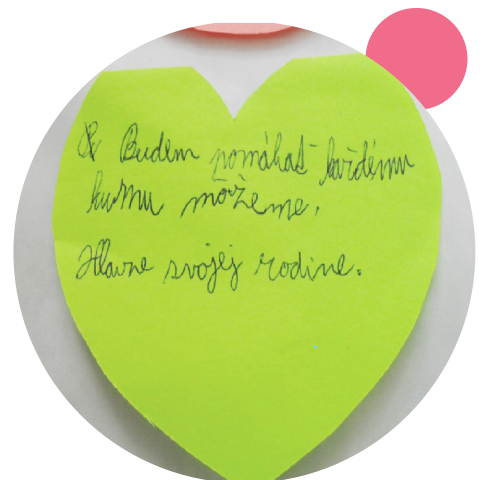 Budem pomáhať každému
kumu možeme.
Hlavne svojej rodine.